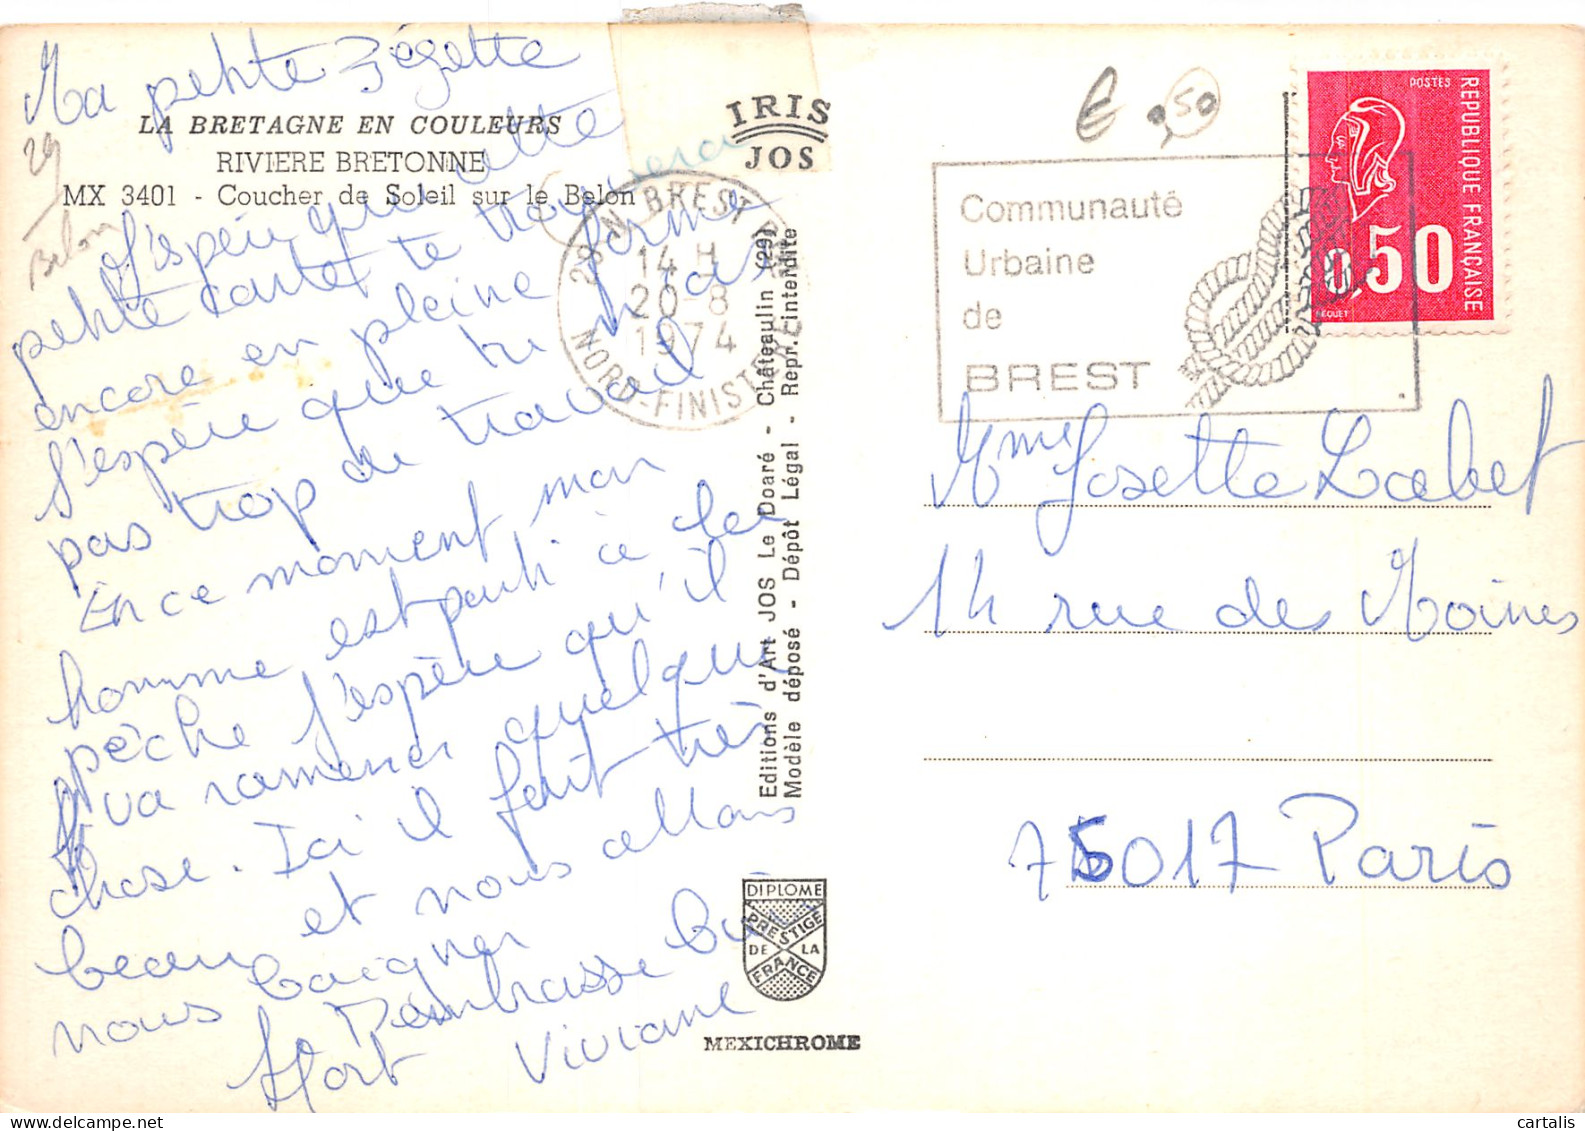 Ma petite zézette
LA BRETAGNE EN COULEURS
RIVIERE BRETONNE
MX 3401 - Coucher de Soleil sur le Belon
29
Belon
J'espère que cette
petite carte te trouvera
encore en pleine forme
J'espère que tu n'as
pas trop de travail
En ce moment mon
homme est parti à la
pêche J'espère qu'il
va ramener quelque
chose. Ici il fait très
beau et nous allons
nous baigner
Je t'embrasse bien
fort Viviane
IRIS
JOS
29 N BREST RP
14 H
20-8
1974
NORD-FINISTERE
Editions d'Art JOS Le Doaré - Châteaulin (29)
Modèle déposé - Dépôt Légal - Repr. interdite
DIPLOME
PRESTIGE
DE LA
FRANCE
MEXICHROME
€ 0,50
Communauté
Urbaine
de
BREST
POSTES
REPUBLIQUE FRANÇAISE
0,50
BEQUET
Mme Josette Labet
14 rue des Moines
75017 Paris
cartalis